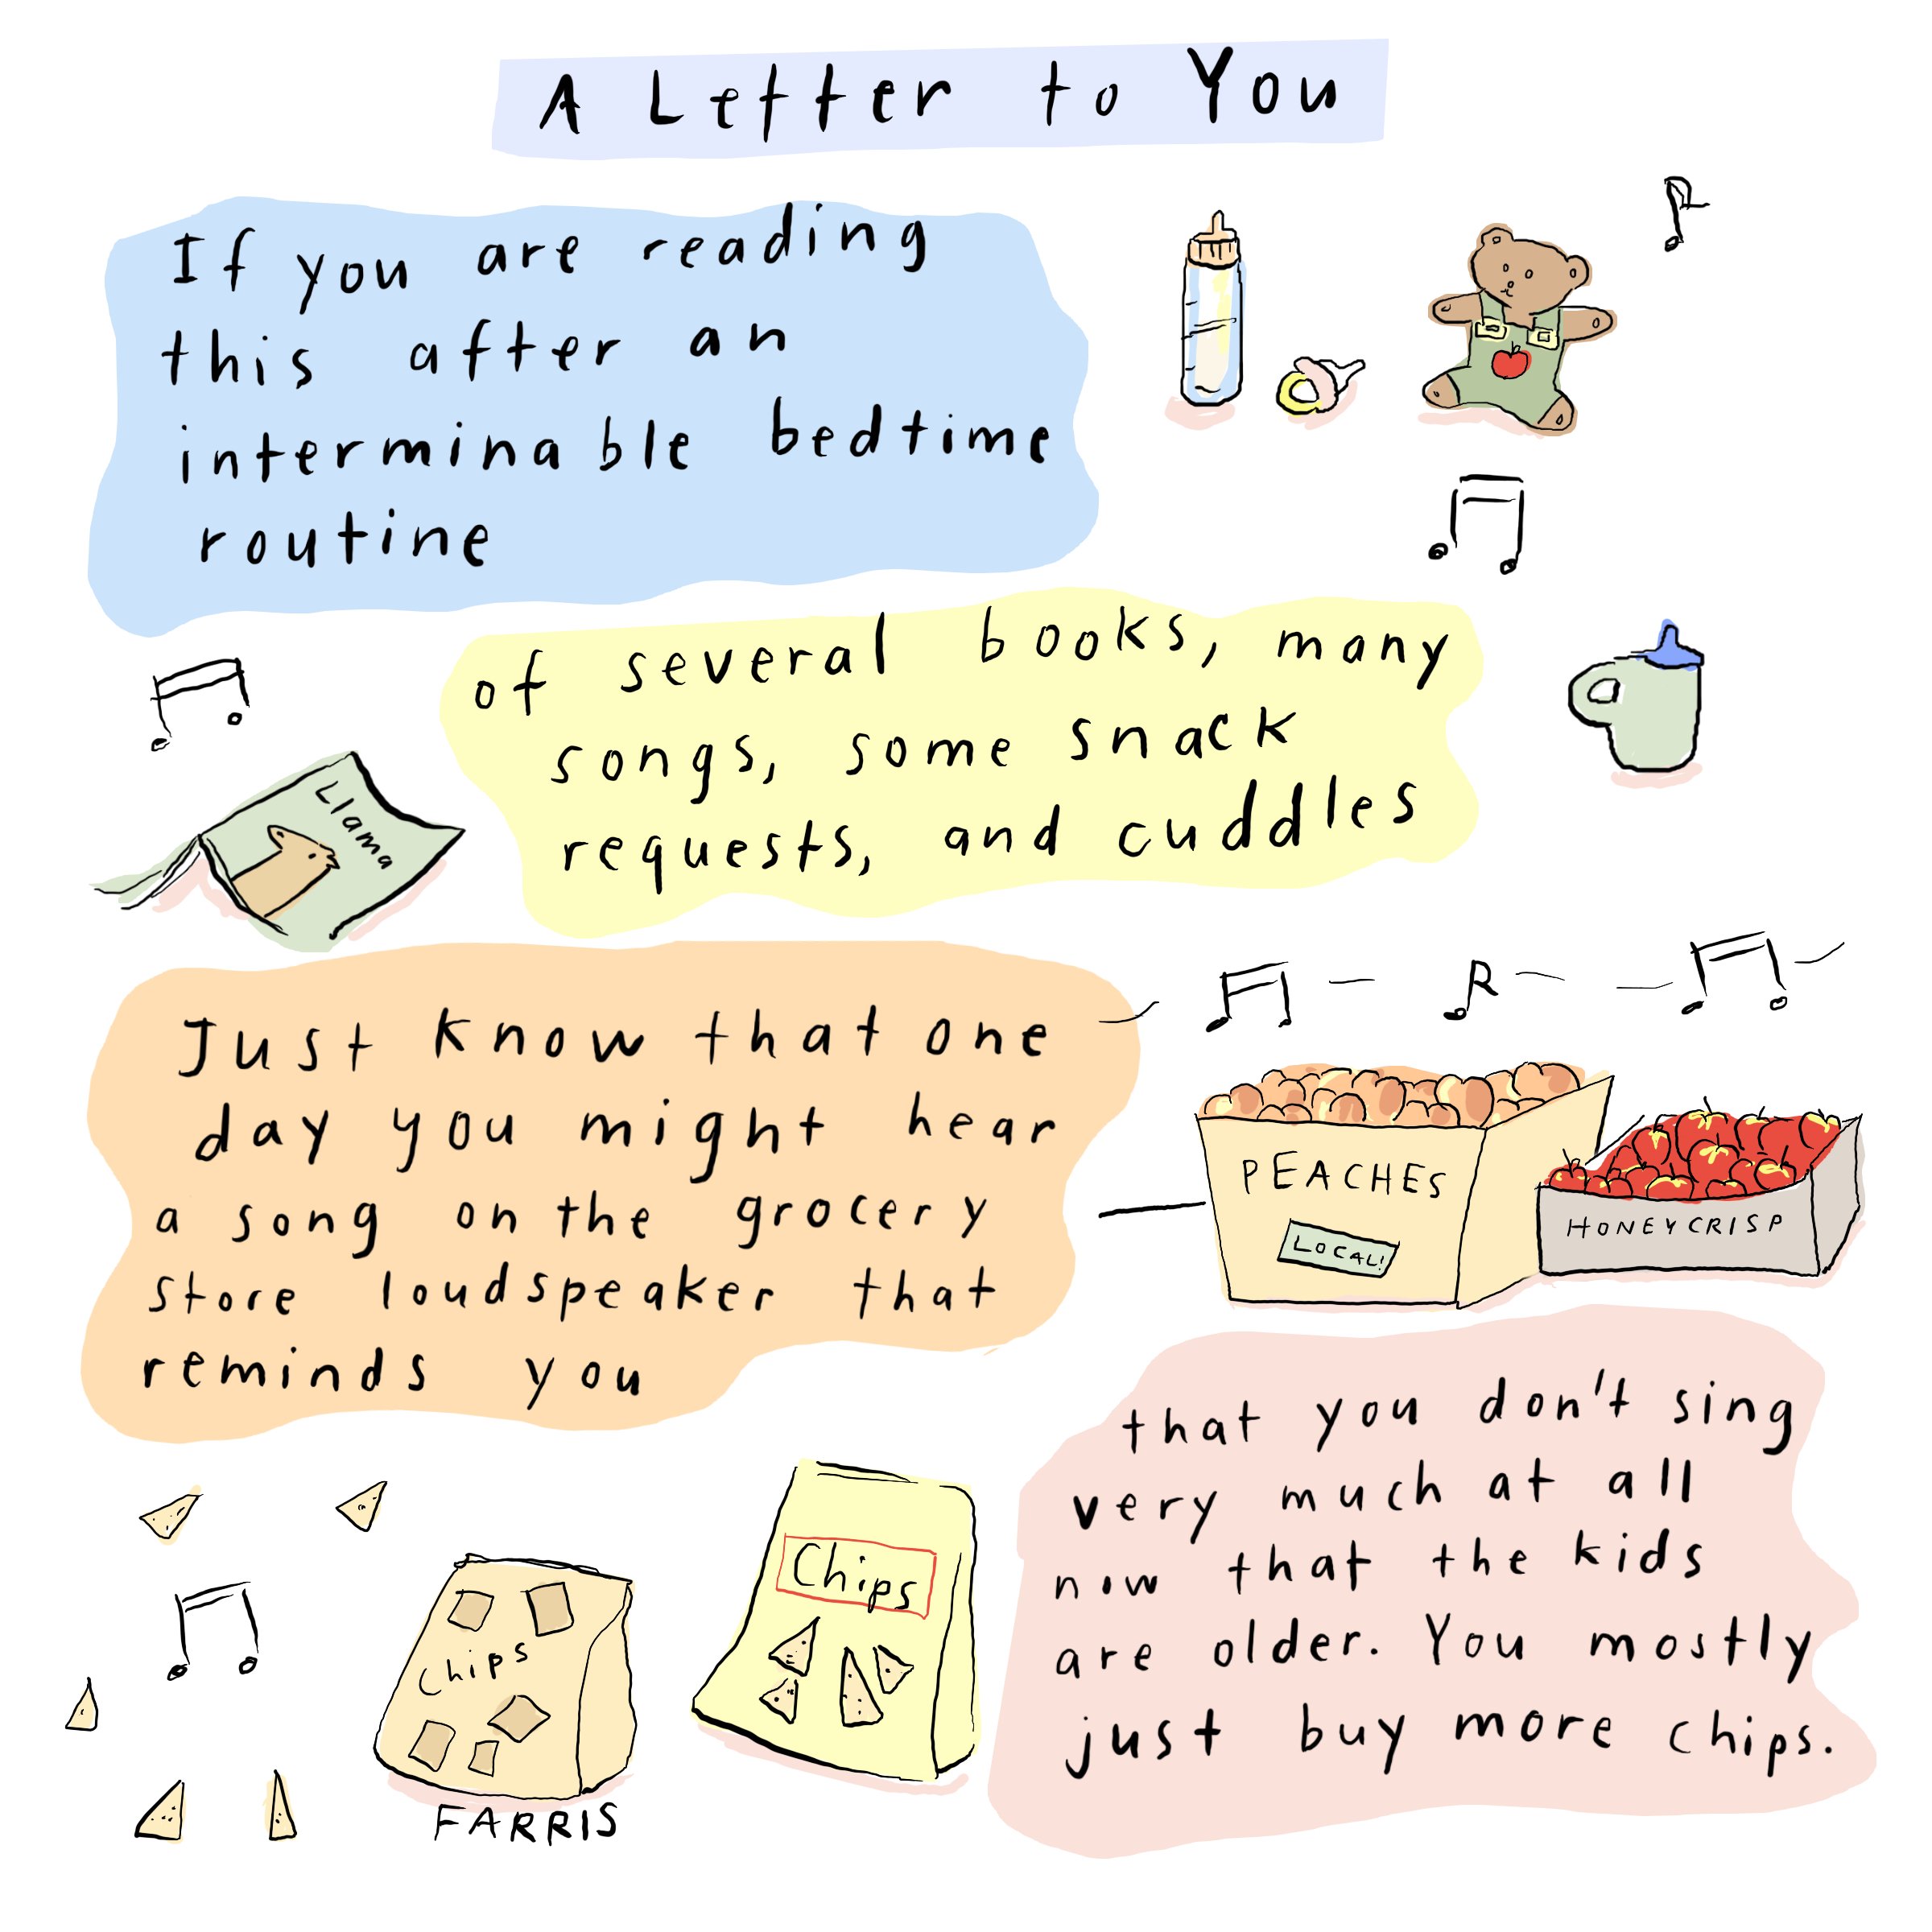 A Letter to You
If you are reading
this after an
interminable bedtime
routine
of several books, many
songs, some snack
requests, and cuddles
Llama
Just know that one
day you might hear
a song on the grocery
store loudspeaker that
reminds you
PEACHES
LOCAL!
HONEYCRISP
that you don't sing
very much at all
now that the kids
are older. You mostly
just buy more chips.
Chips
Chips
FARRIS